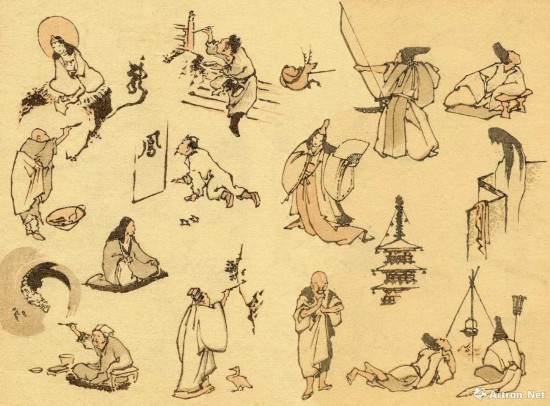 鳳
Artron.Net